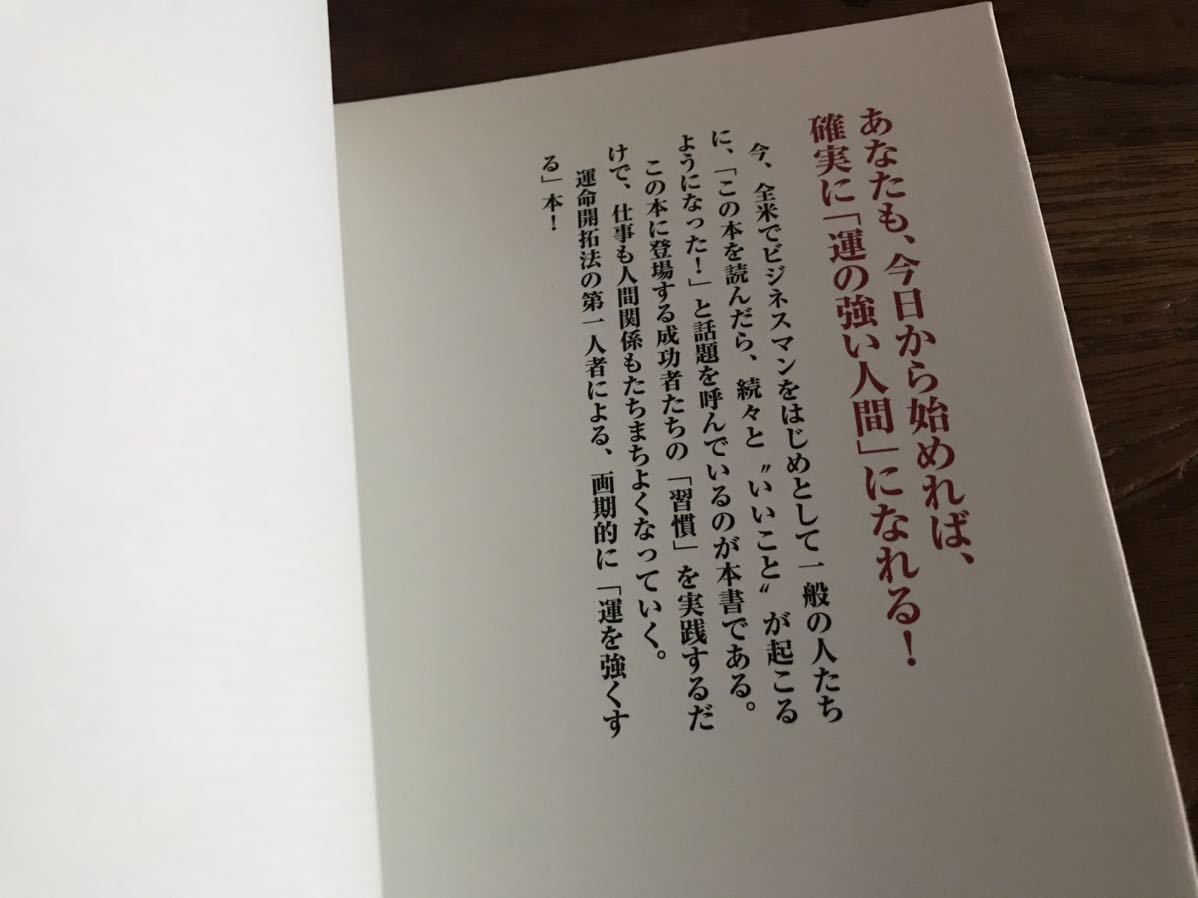 あなたも、今日から始めれば、
確実に「運の強い人間」になれる！
今、全米でビジネスマンをはじめとして一般の人たち
に、「この本を読んだら、続々と〝いいこと〟が起こる
ようになった！」と話題を呼んでいるのが本書である。
この本に登場する成功者たちの「習慣」を実践するだ
けで、仕事も人間関係もたちまちよくなっていく。
運命開拓法の第一人者による、画期的に「運を強くす
る」本！